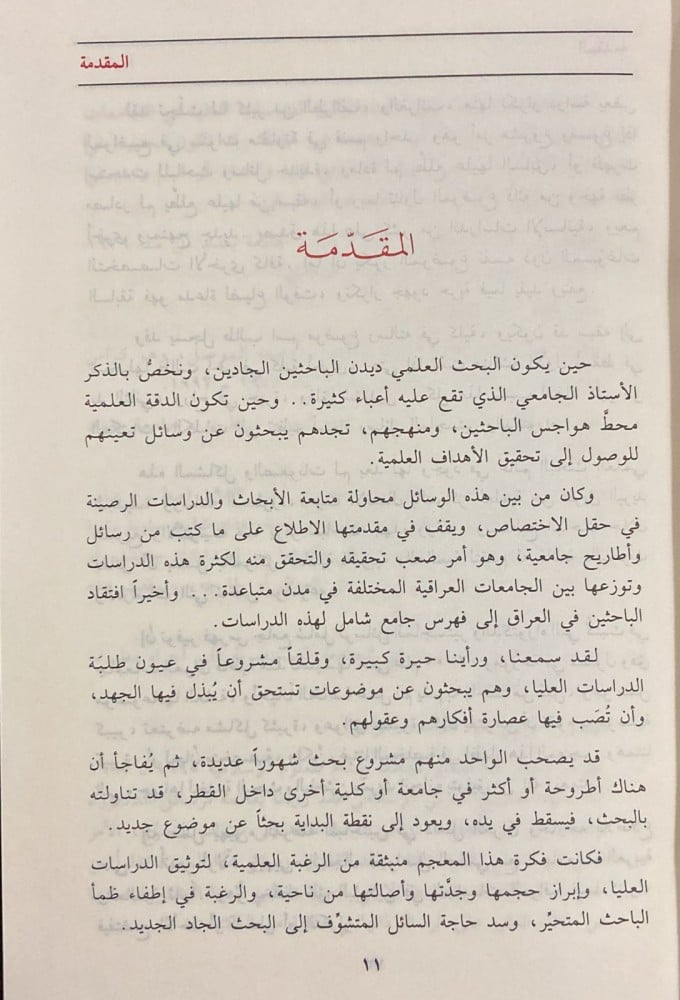 المقدمة
المقَدّمَة
حين يكون البحث العلمي ديدن الباحثين الجادين، ونخصُّ بالذكر
الأستاذ الجامعي الذي تقع عليه أعباء كثيرة.. وحين تكون الدقة العلمية
محطَّ هواجس الباحثين، ومنهجهم، تجدهم يبحثون عن وسائل تعينهم
للوصول إلى تحقيق الأهداف العلمية.
وكان من بين هذه الوسائل محاولة متابعة الأبحاث والدراسات الرصينة
في حقل الاختصاص، ويقف في مقدمتها الاطلاع على ما كتب من رسائل
وأطاريح جامعية، وهو أمر صعب تحقيقه والتحقق منه لكثرة هذه الدراسات
وتوزعها بين الجامعات العراقية المختلفة في مدن متباعدة... وأخيراً افتقاد
الباحثين في العراق إلى فهرس جامع شامل لهذه الدراسات.
لقد سمعنا، ورأينا حيرة كبيرة، وقلقاً مشروعاً في عيون طلبَة
الدراسات العليا، وهم يبحثون عن موضوعات تستحق أن يُبذل فيها الجهد،
وأن تُصَب فيها عصارة أفكارهم وعقولهم.
قد يصحب الواحد منهم مشروع بحث شهوراً عديدة، ثم يُفاجأ أن
هناك أطروحة أو أكثر في جامعة أو كلية أخرى داخل القطر، قد تناولته
بالبحث، فيسقط في يده، ويعود إلى نقطة البداية بحثاً عن موضوع جديد.
فكانت فكرة هذا المعجم منبثقة من الرغبة العلمية، لتوثيق الدراسات
العليا، وإبراز حجمها وجدَّتها وأصالتها من ناحية، والرغبة في إطفاء ظمأ
الباحث المتحيِّر، وسد حاجة السائل المتشوِّف إلى البحث الجاد الجديد.
١١